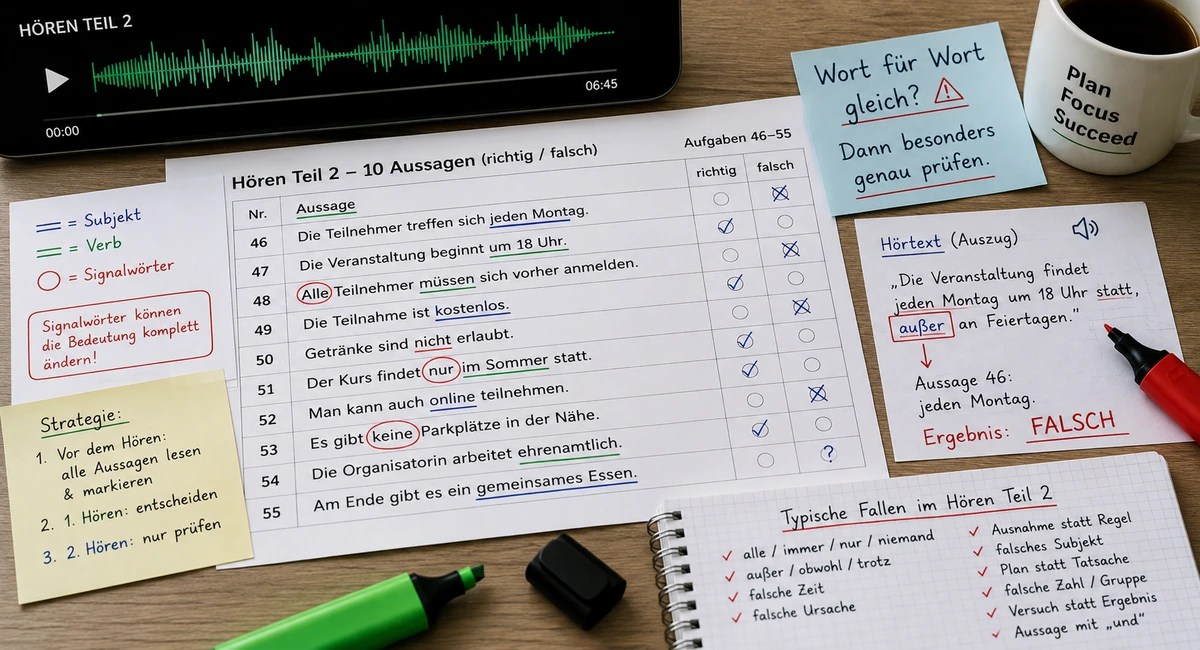 HÖREN TEIL 2
00:00
06:45
Hören Teil 2 – 10 Aussagen (richtig / falsch)
Aufgaben 46–55
Nr. Aussage richtig falsch
46 Die Teilnehmer treffen sich jeden Montag.
47 Die Veranstaltung beginnt um 18 Uhr.
48 Alle Teilnehmer müssen sich vorher anmelden.
49 Die Teilnahme ist kostenlos.
50 Getränke sind nicht erlaubt.
51 Der Kurs findet nur im Sommer statt.
52 Man kann auch online teilnehmen.
53 Es gibt keine Parkplätze in der Nähe.
54 Die Organisatorin arbeitet ehrenamtlich.
55 Am Ende gibt es ein gemeinsames Essen.
?
= Subjekt
= Verb
= Signalwörter
Signalwörter können
die Bedeutung komplett
ändern!
Strategie:
1. Vor dem Hören:
alle Aussagen lesen
& markieren
2. 1. Hören: entscheiden
3. 2. Hören: nur prüfen
Wort für Wort
gleich?
Dann besonders
genau prüfen.
Plan
Focus
Succeed
Hörtext (Auszug)
„Die Veranstaltung findet
jeden Montag um 18 Uhr statt,
außer an Feiertagen.“
Aussage 46:
jeden Montag.
Ergebnis: FALSCH
Typische Fallen im Hören Teil 2
alle / immer / nur / niemand
außer / obwohl / trotz
falsche Zeit
falsche Ursache
Ausnahme statt Regel
falsches Subjekt
Plan statt Tatsache
falsche Zahl / Gruppe
Versuch statt Ergebnis
Aussage mit „und“